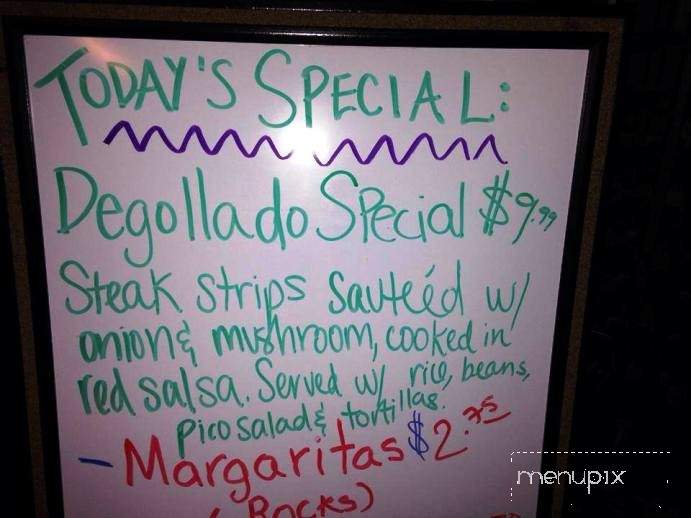 TODAY'S SPECIAL:
Degollado Special $9.99
Steak strips sautéed w/
onion & mushroom, cooked in
red salsa. Served w/ rice, beans,
pico salad & tortillas.
- Margaritas $2.75
(Rocks)
menupix